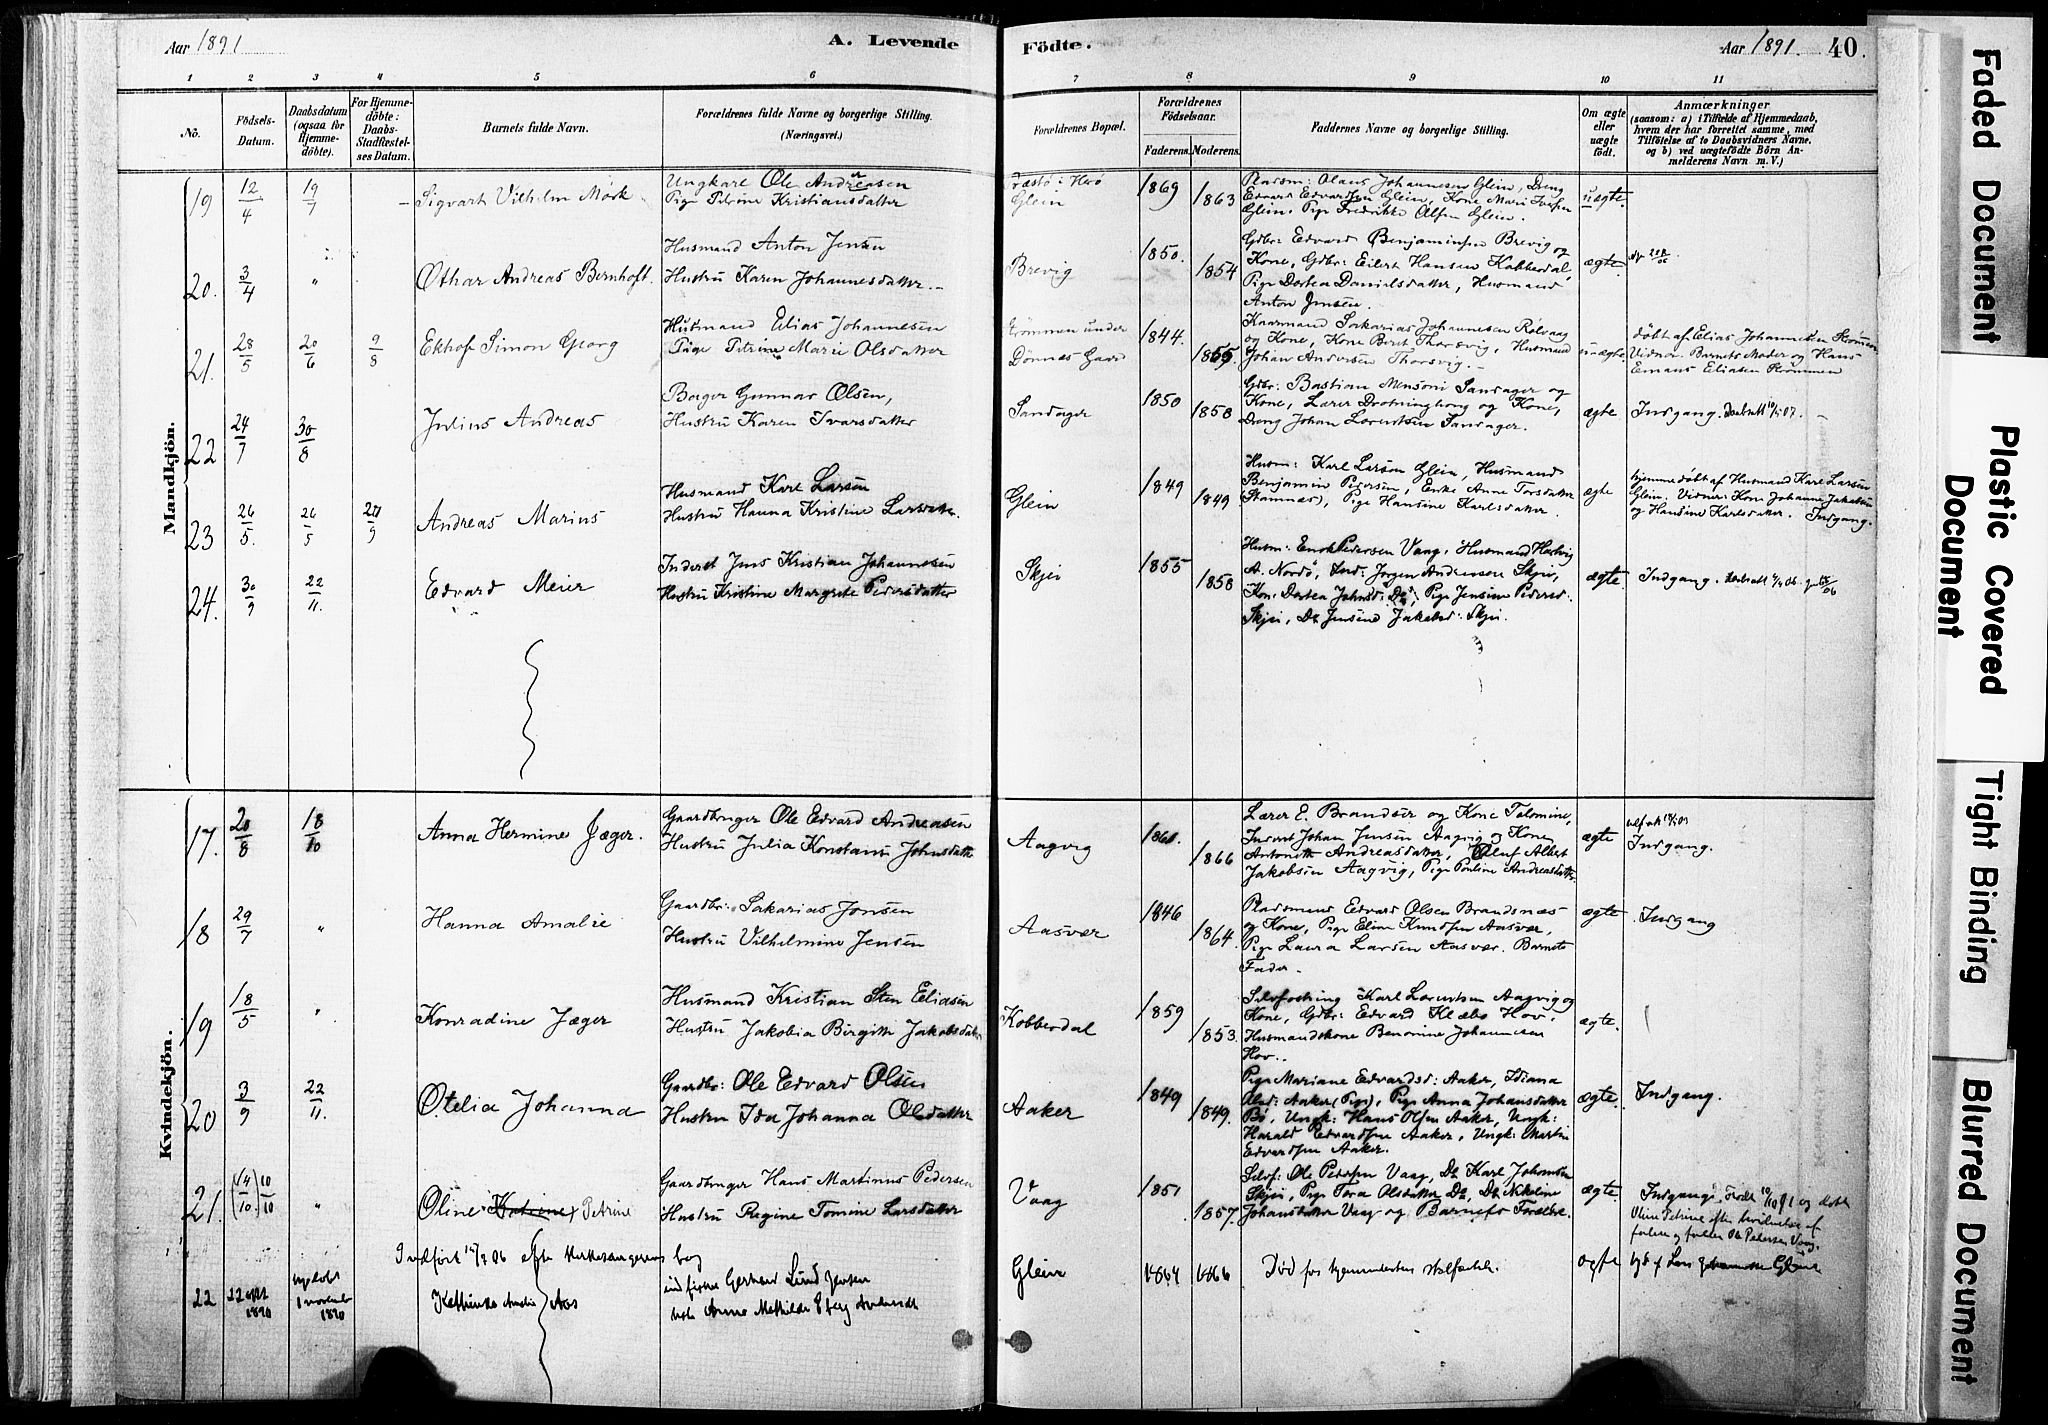 Aar 1891
A. Levende
Födte.
Aar 1891. 40.
1 2 3 4 5 6 7 8 9 10 11
No.
Födsels-
Datum.
Daabsdatum
(ogsaa for
Hjemme-
döbte).
For Hjemme-
döbte:
Daabs-
Stadfæstel-
ses Datum.
Barnets fulde Navn.
Forældrenes fulde Navne og borgerlige Stilling.
(Næringsvei.)
Forældrenes Bopæl.
Forældrenes
Födselsaar.
Faderens. Moderens.
Faddernes Navne og borgerlige Stilling.
Om ægte
eller
uægte
födt.
Anmærkninger
(saasom: a) i Tilfælde af Hjemmedaab,
hvem der har forrettet samme, med
Tilföielse af to Daabsvidners Navne,
og b) ved uægtefödte Börn An-
melderens Navn m. V.)
Mandkjön.
19 12/4 19/7 Sigvart Vilhelm Mørk
Ungkarl Ole Andreasen
Pige Petrine Kristiansdatter
Glein
1869 1863
Pladsm: Olaus Johannesen Glein, Dreng
Edvard Edvardsen Glein, Kone Mari Iversen
Glein. Pige Fredrikke Olsen Glein.
uægte.
20. 3/4 " Othar Andreas Bernhoft.
Husmand Anton Jensen
Hustru Karen Johannesdatter.
Brevig
1850. 1854
Gdbr: Edvard Benjaminsen Brevig og
Kone, Gdbr: Eilert Hansen Kobberdal,
Pige Dortea Danielsdatter, Husmand
Anton Jensen.
ægte.
21. 28/5 20/6 9/8 Ekhof Simon Georg
Husmand Elias Johannesen
Pige Petrine Marie Olsdatter
Strømmen under
Dønnes Gaard
1844. 1855.
Kaarmand Sakarias Johannesen Rølvaag
og Kone, Kone Berit Thorsvig, Husmand
Johan Andersen Thorsvig.
uægte
døbt af Elias Johannesen Strømmen
Vidner Barnets Moder og Hans
Emans Eliasen Strømmen
22 24/7 30/8 Julius Andreas
Bager Gunnar Olsen,
Hustru Karen Ivarsdatter
Sandager
1850 1858
Gdbr: Bastian Mensoni Sandager og
Kone, Lærer Drotninghong og Kone,
Dreng Johan Lorentsen Sandager.
ægte Indgang.
23 26/5. 26/5 20/9 Andreas Marius
Husmand Karl Larsen
Hustru Hanna Kristine Larsdatter.
Glein
1849 1849
Husm: Karl Larsen Glein, Husmand
Benjamin Pedersen, Enke Anne Torsdatter
Stamnes, Pige Hansine Karlsdatter.
ægte
hjemmedøbt af Husmand Karl Larsen
Glein, Vidner: Kone Johanne Jakobsen
og Hansine Karlsdatter. Indgang.
24. 30/9 22/11. Edvard Meier
Inderst Jens Kristian Johannesen
Hustru Kristine Margrete Pedersdatter
Skjei
1855 1858
Husm: Enok Pedersen Vaag, Husmand Hartvig
A. Nordø, Ind: Jørgen Andreasen Skjei,
Kone Dortea Johnsd: Do, Pige Jensine Pedersd:
Skjei, Do Jensine Jakobsd: Skjei.
ægte Indgang.
Kvindekjön.
17. 20/8 18/10 Anna Hermine Jæger.
Gaardbruger Ole Edvard Andreasen
Hustru Julia Konstanse Johnsdatter
Aagvig
1861. 1866
Lærer E. Brandser og Kone Tolomine,
Inderst Johan Jensen Aagvig og Kone
Antonette Andreasdatter, Oluf Albert
Jakobsen Aagvig, Pige Pauline Andreasdatter.
ægte
Indgang.
18 29/7 " Hanna Amalie
Gaardbr: Sakarias Jensen
Hustru Vilhelmine Jensen
Aasvær
1846 1864
Pladsmand Edvard Olsen Brandsnæs
og Kone, Pige Eline Knudsen Aasvær,
Pige Laura Larsen Aasvær. Barnets
Fader.
ægte. Indgang
19 18/5 " Konradine Jæger
Husmand Kristian Sten Eliasen
Hustru Jakobia Birgitte Jakobsdatter
Kobberdal
1859 1853.
Selvfostring Karl Lorentsen Aagvig og
Kone, Gdbr: Edvard Klæbo Hov,
Husmandskone Benonine Johannesen
Hov.
ægte.
20 3/9 22/11. Otelia Johanna
Gaardbr: Ole Edvard Olsen
Hustru Ida Johanna Olsdatter
Aaker
1849 1849.
Pige Mariane Edvardsd: Aaker, Idiana
Olsd: Aaker (Pige), Pige Anna Johansdatter
Bø, Ungk: Hans Olsen Aaker, Ungk:
Harald Edvardsen Aaker, Ungk: Martin
Edvardsen Aaker.
ægte. Indgang.
21. (14/10.) 10/10 " Oline Katrine Petrine
Gaardbruger Hans Martinus Pedersen
Hustru Regine Tomine Larsdatter
Vaag
1851 1857.
Selvf: Ole Pedersen Vaag, Do Karl Johansen
Skjei, Pige Tora Olsdatter Do, Do Nikoline
Johansdatter Vaag og Barnets Forældre.
ægte.
Indgang. Født 10/10 91 og døbt
Oline Petrine efter
Ole Pedersen Vaag.
Indført 14/7 06 efter Kirkesangerens bog
22 22 sept 1890
1 november
1890
Kathinka Amalie Aas
Anna Mathilde
Glein
1864 1866
Død
ægte
Faded Document
Plastic Covered Document
Tight Binding
Blurred Document